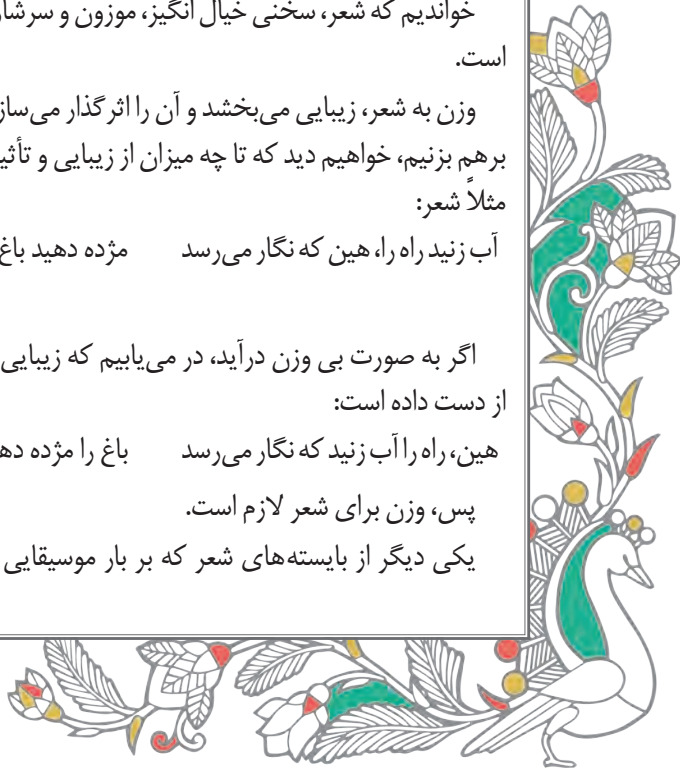 خواندیم که شعر، سخنی خیال انگیز، موزون و
است.
وزن به شعر، زیبایی می‌بخشد و آن را اثرگذار
برهم بزنیم، خواهیم دید که تا چه میزان از زیبایی و
مثلاً شعر:
آب زنید راه را، هین که نگار می‌رسد مژده دهید باغ
اگر به صورت بی وزن درآید، در می‌یابیم که زیبایی
از دست داده است:
هین، راه را آب زنید که نگار می‌رسد باغ را مژده
پس، وزن برای شعر لازم است.
یکی دیگر از بایسته‌های شعر که بر بار موسیقایی